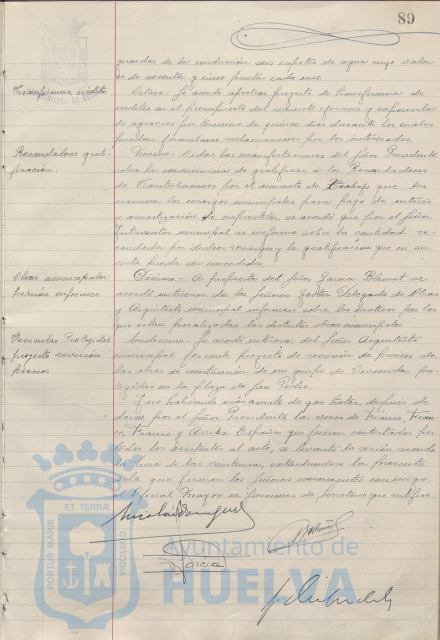 89
guardas de la conducción seis capotes de agua cuyo valor
es de sesenta y cinco pesetas cada uno
Transferencia créditos
Octavo.- Se acordó aprobar proyecto de transferencia de
créditos en el presupuesto del corriente ejercicio y exponerlo
de agravios por término de quince días durante los cuales
puedan formularse reclamaciones por los interesados.
Recaudadores gratificación.
Noveno.- Vistas las manifestaciones del Señor Presidente
sobre la conveniencia de gratificar a los Recaudadores
de Contribuciones por el aumento de trabajo que les
los recargos municipales para pago de interés
y amortización de empréstitos, se acordó que por el Señor
Interventor municipal se informe sobre la cantidad re-
caudada por dichos recargos y la gratificación que en su
vista pueda ser concedida.
Obras municipales:
informes
Décimo.- A propuesta del Señor García se
acordó interesar de los Señores Gestor Delegado de Obras
y Arquitecto municipal informes sobre los motivos por los
que están paralizadas las distintas obras municipales.
Viviendas Protegidas
proyecto revisión
precios
Undécimo.- Se acordó interesar del Señor Arquitecto
municipal formule proyecto de revisión de precios de
las obras de construcción de un grupo de Viviendas pro-
tegidas en la plaza de San Pedro.
Y no habiendo más asuntos de que tratar, después de
darse por el Señor Presidente las voces de Franco, Fran-
co, Franco y Arriba España que fueron contestadas por
todos los asistentes al acto, se levantó la sesión siendo
la hora de las veintiuna, extendiéndose la presente
acta que firman los Señores concurrentes conmigo
el Oficial Mayor en funciones de Secretario que certifico.
Nicolás Domínguez
García
ET TERRÆ
PORTUS MARIS
CUSTODIA
Ayuntamiento de
HUELVA